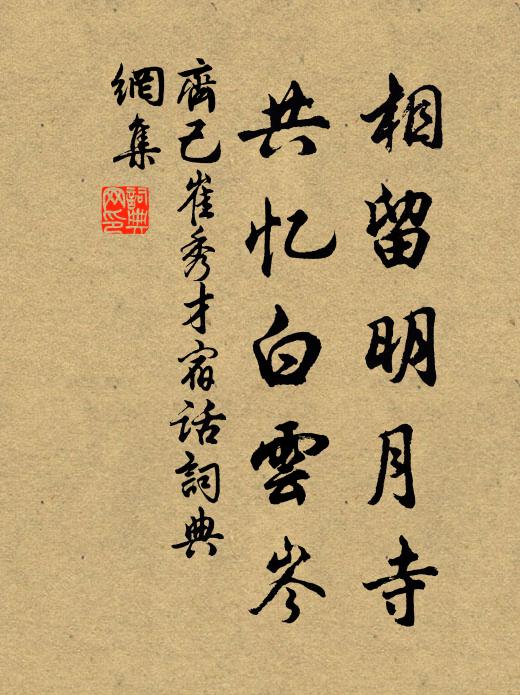 相留明月寺
共忆白雲岑
齊己崔秀才宿話詞典
網集
詞典網印